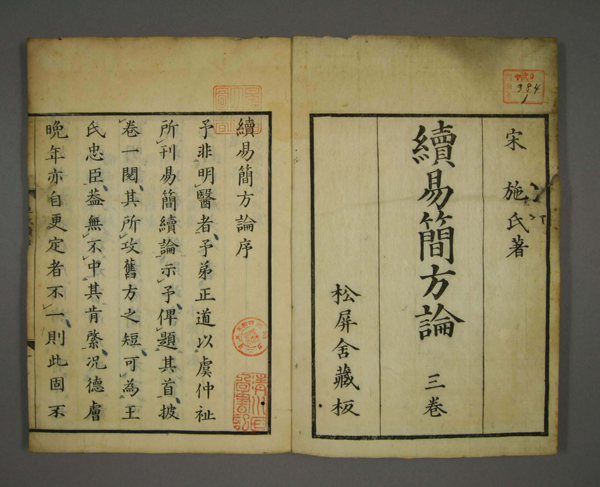 宋 施氏著
續易簡方論 三卷
松屏舍藏板
續易簡方論序
予非明醫者予弟正道以虞仲祉
所刊易簡續論示予俾題其首披
卷一閱其所攻舊方之短可為王
氏忠臣葢無不中其肯綮況德膚
晚年亦自更定者不一則此固不